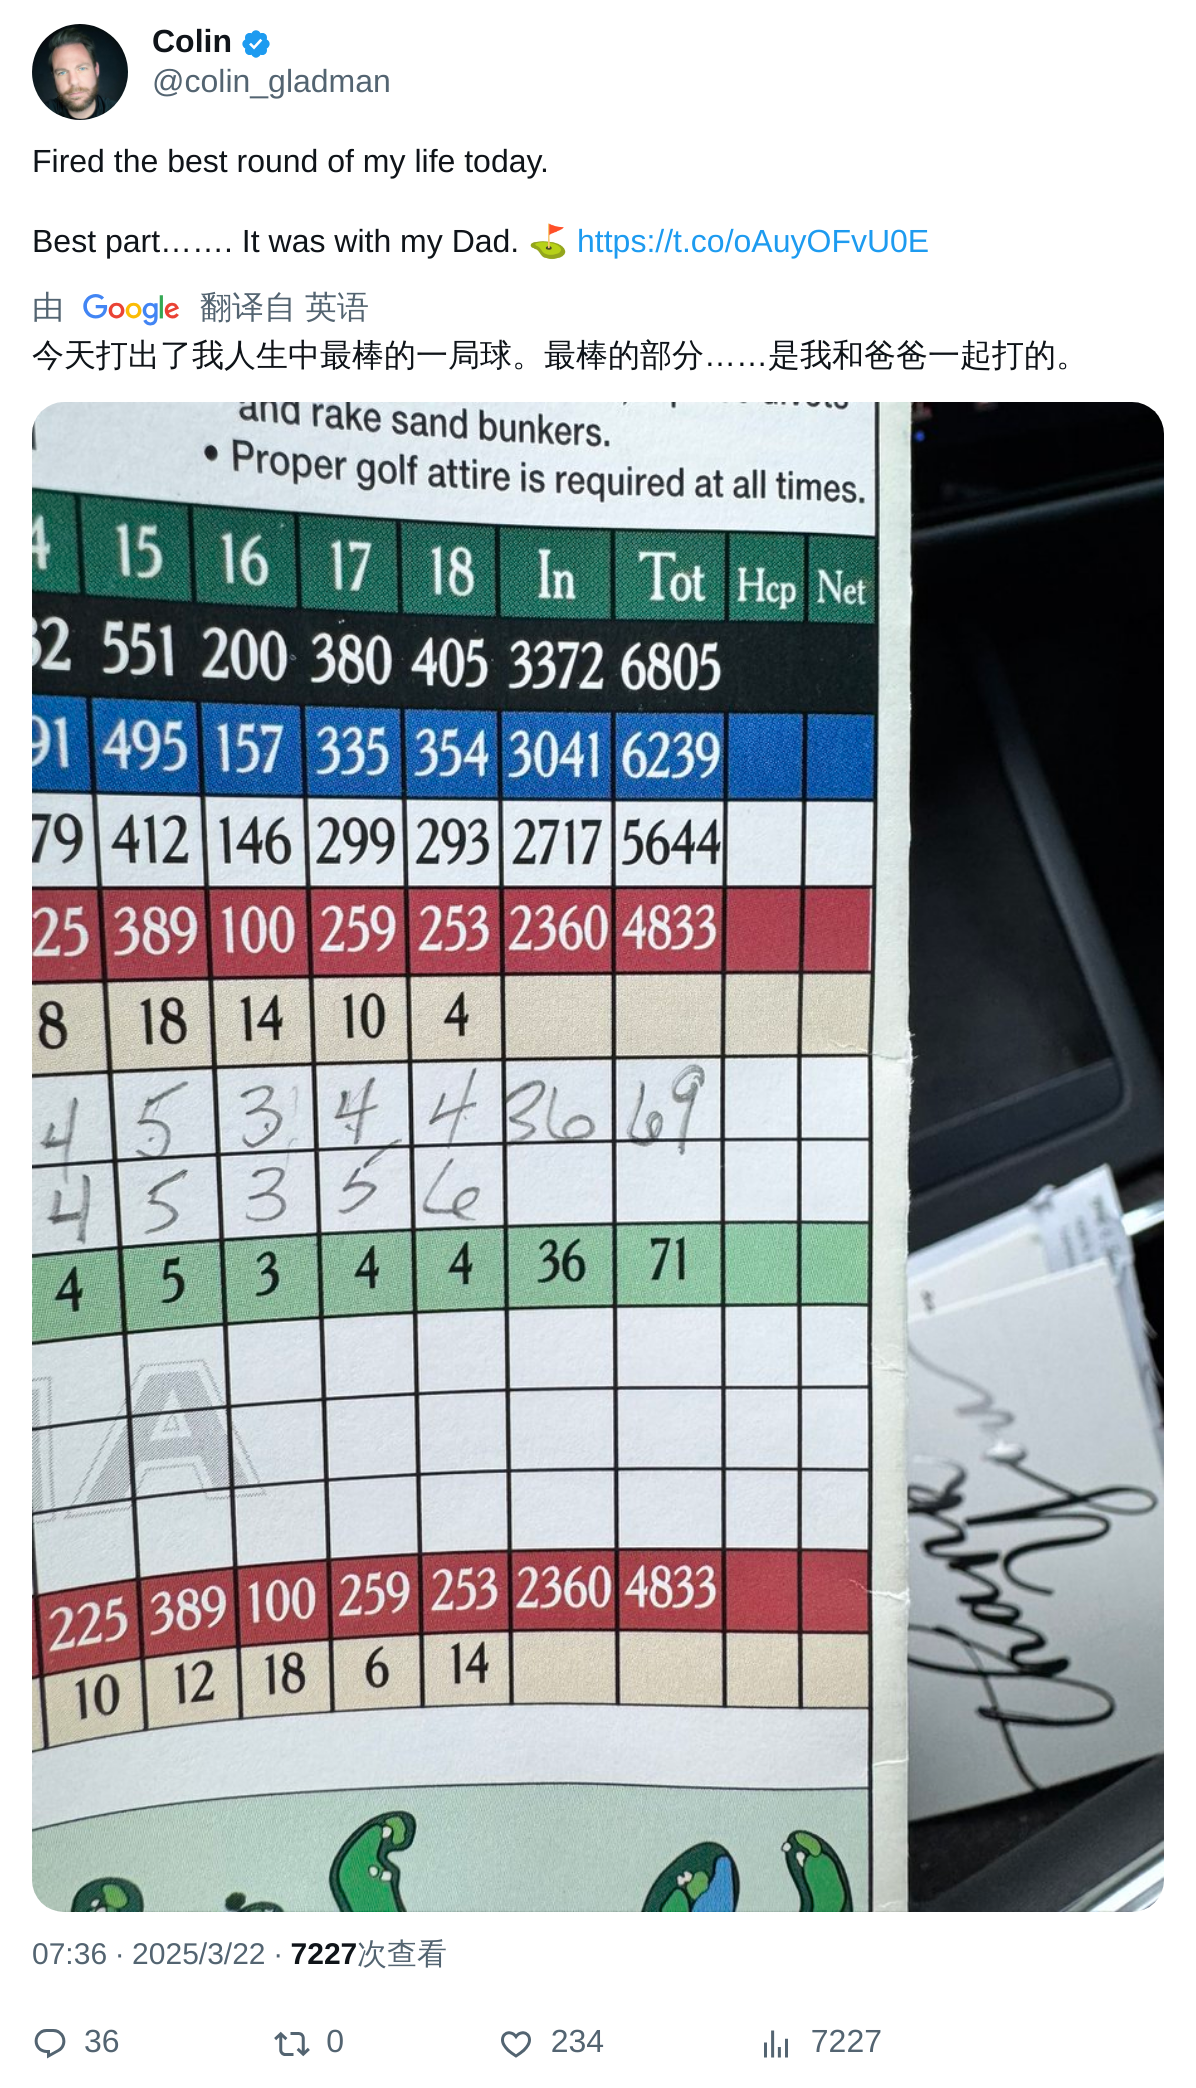 Colin
@colin_gladman
Fired the best round of my life today.
Best part……. It was with my Dad. ⛳ https://t.co/oAuyOFvU0E
由 Google 翻译自 英语
今天打出了我人生中最棒的一局球。最棒的部分……是我和爸爸一起打的。
and rake sand bunkers.
• Proper golf attire is required at all times.
4 15 16 17 18 In Tot Hcp Net
32 551 200 380 405 3372 6805
91 495 157 335 354 3041 6239
79 412 146 299 293 2717 5644
25 389 100 259 253 2360 4833
8 18 14 10 4
4 5 3 4 4 36 69
4 5 3 5 6
4 5 3 4 4 36 71
A
225 389 100 259 253 2360 4833
10 12 18 6 14
07:36 · 2025/3/22 · 7227次查看
36 0 234 7227